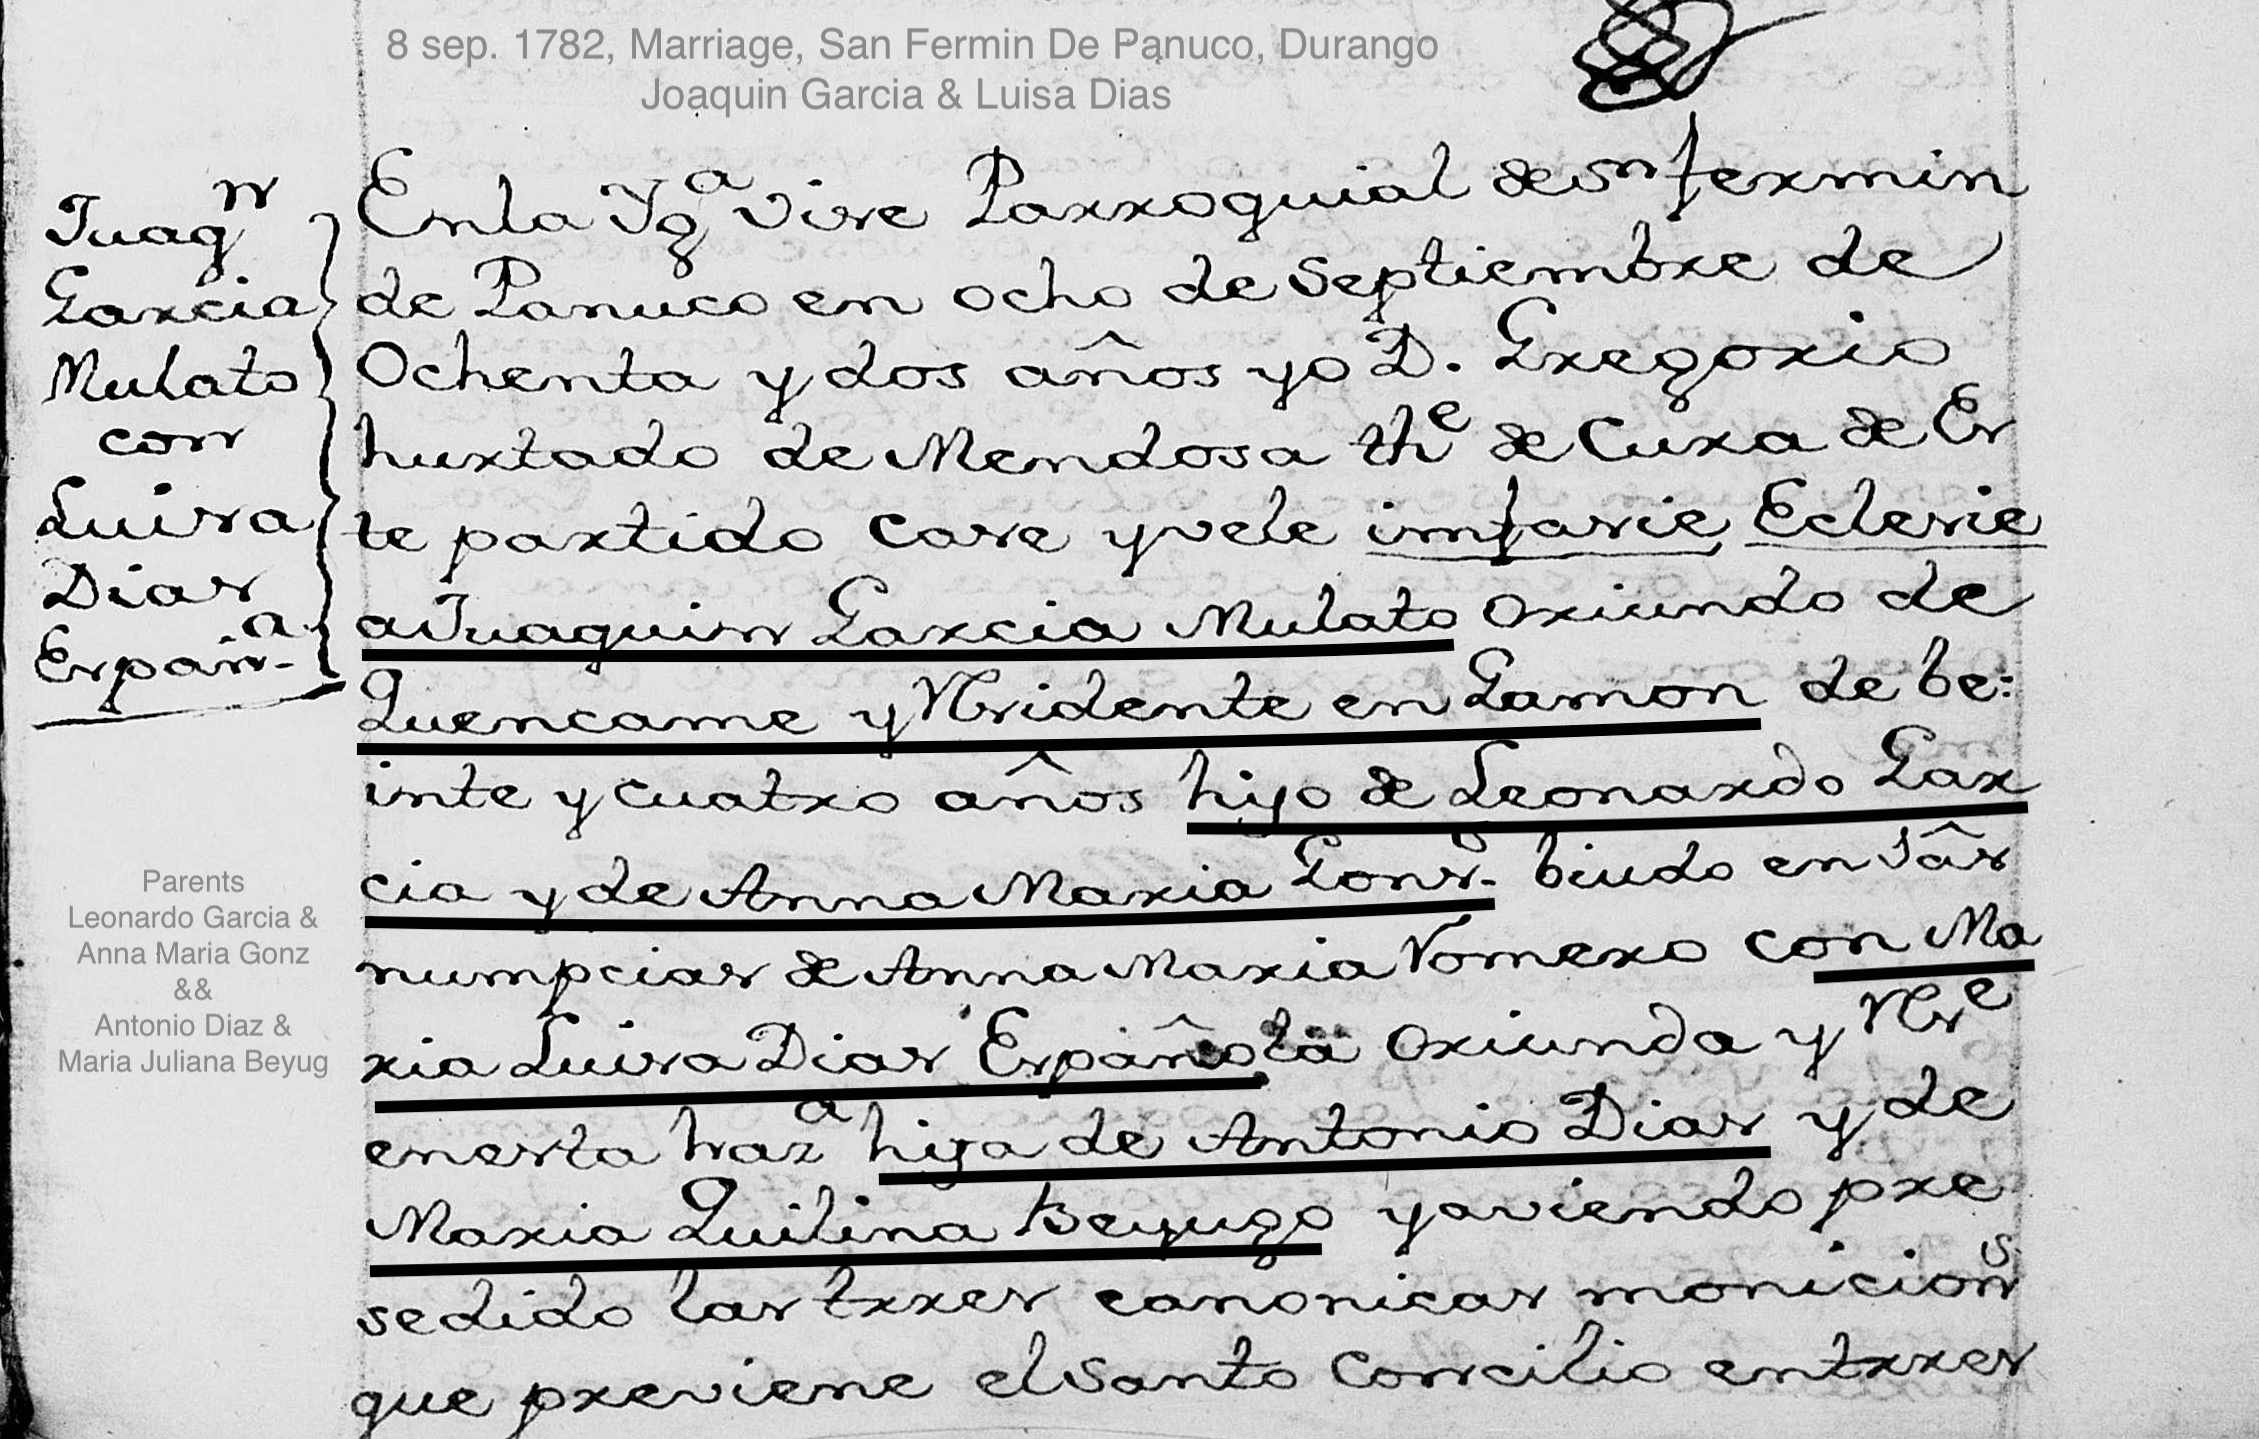 8 sep. 1782, Marriage, San Fermin De Panuco, Durango
Joaquin Garcia & Luisa Dias
Juaqn
Garcia
Mulato
con
Luisa
Dias
Españ.a
En la Yga vise Parroquial de Sn fermin
de Panuco en ocho de Septiembre de
Ochenta y dos años yo D. Gregorio
hurtado de Mendosa the de Cura de Es
te partido case y vele imfasie Eclesie
a Juaquin Garcia Mulato Oriundo de
Quencame y Rsidente en Gamon de be:
inte y cuatro años hijo de Leonardo Gar
cia y de Anna Maria Gons. biudo en
numpcias de Anna Maria Romero con Ma
ria Luisa Dias Española Oriunda y Rse
en esta haza hija de Antonio Dias y de
Maria Quilina Beyugo y aviendo pre
sedido las trres canonicas monicions
que previene el Santo Concilio entrres
Parents
Leonardo Garcia &
Anna Maria Gonz
&&
Antonio Diaz &
Maria Juliana Beyug